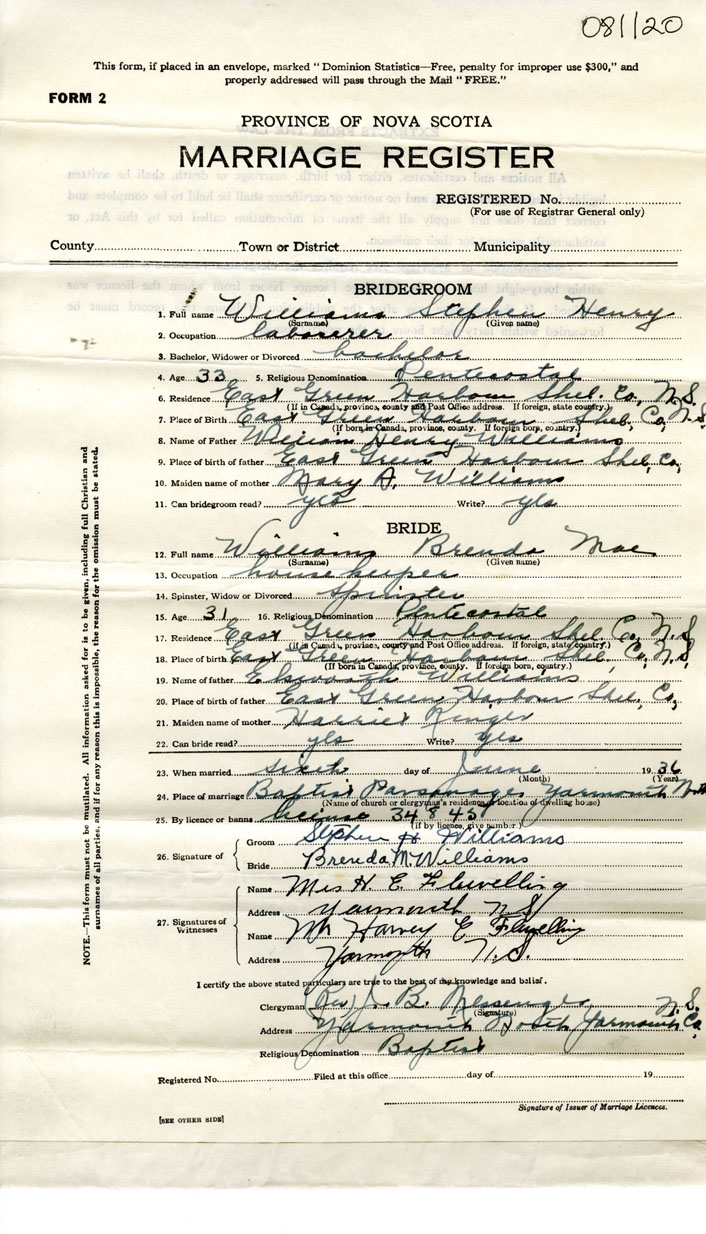 081120
This form, if placed in an envelope, marked "Dominion Statistics—Free, penalty for improper use $300," and
properly addressed will pass through the Mail "FREE."
FORM 2
PROVINCE OF NOVA SCOTIA
MARRIAGE REGISTER
REGISTERED No.
(For use of Registrar General only)
County Town or District Municipality
BRIDEGROOM
1. Full name Williams Stephen Henry
(Surname) (Given name)
2. Occupation laborer
3. Bachelor, Widower or Divorced bachelor
4. Age 33 5. Religious Denomination Pentecostal
6. Residence East Green Harbour Shel. Co. N.S.
(If in Canada, province, county and Post Office address. If foreign, state country.)
7. Place of Birth East Green Harbour Shel, Co, N.S.
(If born in Canada, province, county. If foreign born, country.)
8. Name of Father William Henry Williams
9. Place of birth of father East Green Harbour Shel, Co,
10. Maiden name of mother Mary A. Williams
11. Can bridegroom read? yes Write? yes
BRIDE
12. Full name Williams Brenda Mae
(Surname) (Given name)
13. Occupation housekeeper
14. Spinster, Widow or Divorced spinster
15. Age 31 16. Religious Denomination Pentecostal
17. Residence East Green Harbour Shel Co, N.S.
(If in Canada, province, county and Post Office address. If foreign, state country.)
18. Place of birth East Green Harbour Shel, Co, N.S,
(If born in Canada, province, county. If foreign born, country.)
19. Name of father Elsworth Williams
20. Place of birth of father East Green Harbour Shel, Co,
21. Maiden name of mother Harriet Ringer
22. Can bride read? yes Write? yes
23. When married sixth day of June 19 36
(Month) (Year)
24. Place of marriage Baptist Parsonage Yarmouth North
(Name of church or clergyman's residence or location of dwelling house)
25. By licence or banns license 34845
(If by licence, give number.)
26. Signature of
Groom Stephen H Williams
Bride Brenda M. Williams
27. Signatures of Witnesses
Name Mrs H. E. Flewelling
Address Yarmouth N.S.
Name Mr Harvey E Flewelling
Address Yarmouth N.S.
I certify the above stated particulars are true to the best of my knowledge and belief.
Clergyman (Rev) J. B. Messenger N.S.
(Signature)
Address Yarmouth North Yarmouth Co,
Religious Denomination Baptist
Registered No. Filed at this office day of 19
Signature of Issuer of Marriage Licences.
[SEE OTHER SIDE]
NOTE.—This form must not be mutilated. All information asked for is to be given, including full Christian and
surnames of all parties, and if for any reason this is impossible, the reason for the omission must be stated.